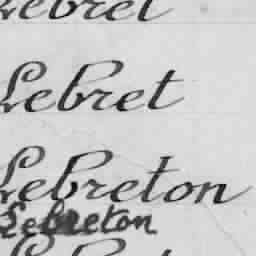 Lebret
Lebret
Lebreton
Lebreton